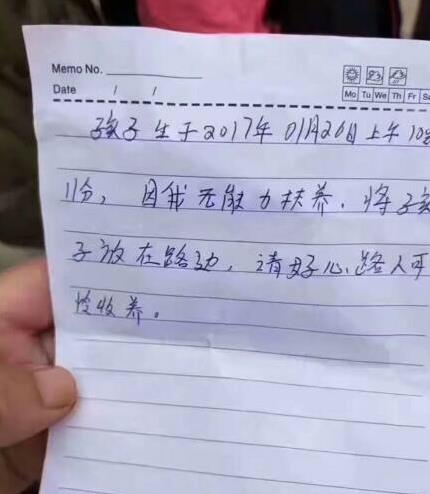 Memo No.
Date / /
Mo Tu We Th Fr Sa
孩子生于2017年01月26日上午10
11分，因我无能力扶养．将孩
子放在路边，请好心路人可
怜收养。